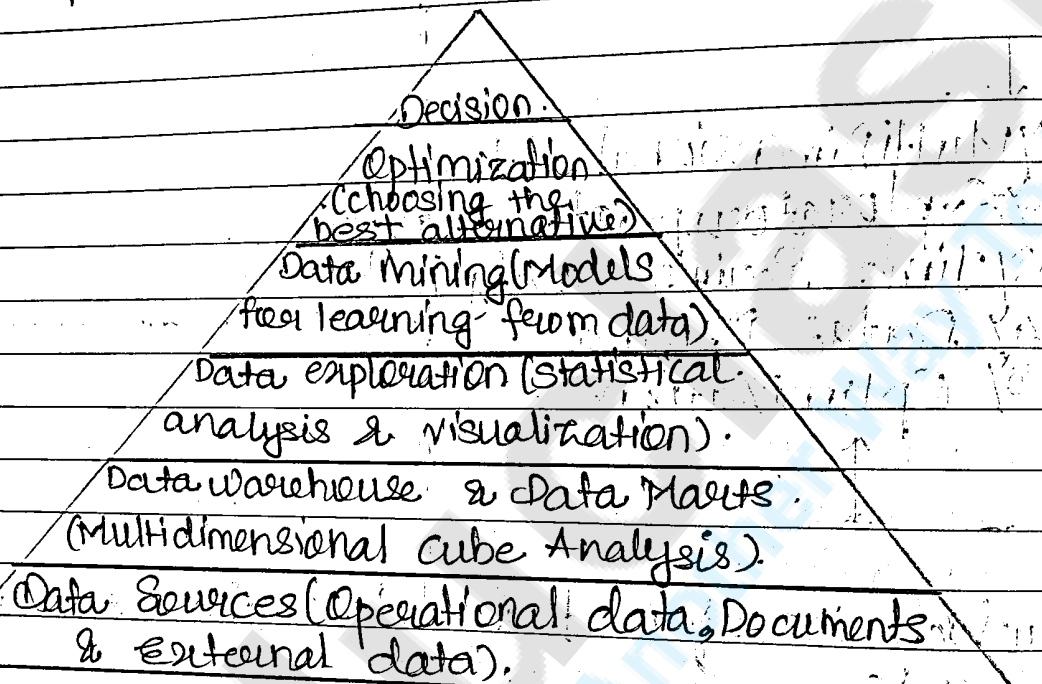 Decision.
Optimization
(choosing the
best alternative)
Data Mining (Models
for learning from data)
Data exploration (statistical
analysis & visualization).
Data warehouse & Data Marts.
(Multidimensional cube Analysis).
Data Sources (Operational data, Documents
& External data).